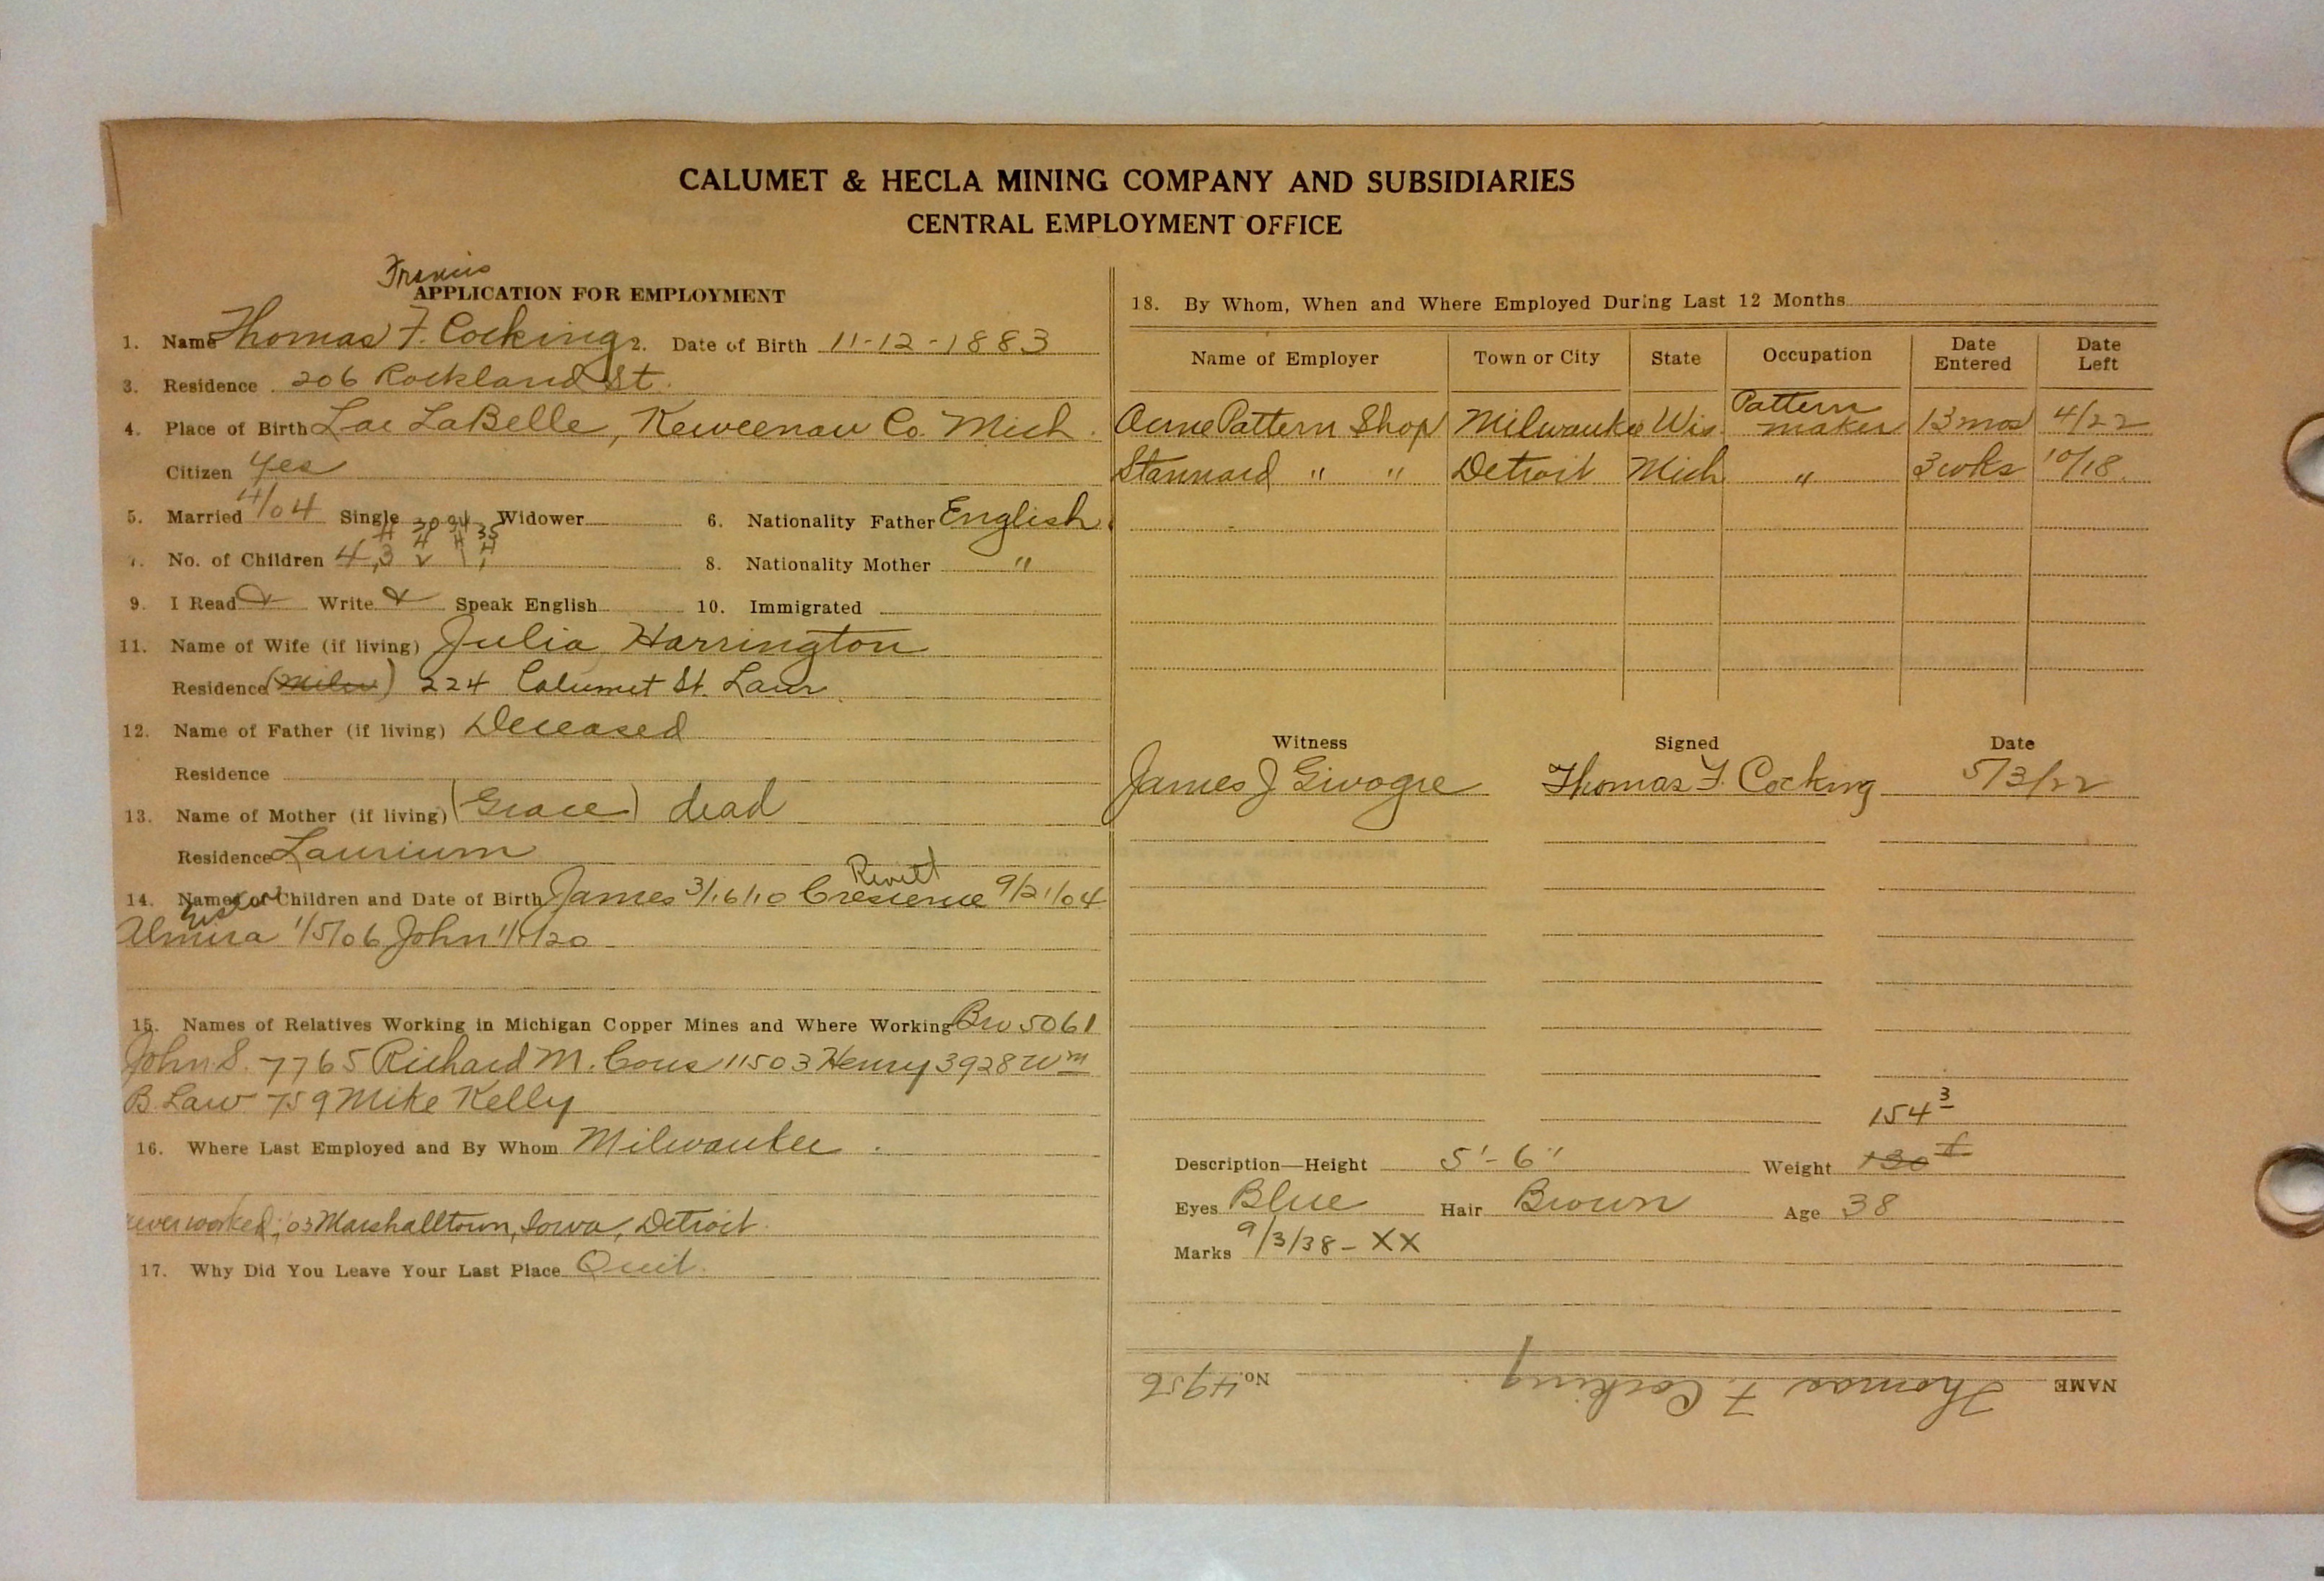 CALUMET & HECLA MINING COMPANY AND SUBSIDIARIES
CENTRAL EMPLOYMENT OFFICE
Francis
APPLICATION FOR EMPLOYMENT
1. Name Thomas F. Cocking 2. Date of Birth 11-12-1883
3. Residence 206 Rockland St.
4. Place of Birth Lac LaBelle, Keweenaw Co. Mich.
Citizen Yes
5. Married 4/04 Single Widower 6. Nationality Father English
30 34 35
7. No. of Children 4, 3 2 1, 8. Nationality Mother "
9. I Read Write Speak English 10. Immigrated
11. Name of Wife (if living) Julia Harrington
Residence (Milw) 224 Calumet St. Laur
12. Name of Father (if living) Deceased
Residence
13. Name of Mother (if living) (Grace) dead
Residence Laurium
14. Names of Children and Date of Birth James 3/16/10 9/21/04
Almira 1/5/06 John
15. Names of Relatives Working in Michigan Copper Mines and Where Working Bro 5061
John S. 7765 Richard M. Cous 11503 Henry 3928 Wm
B. Law 759 Mike Kelly
16. Where Last Employed and By Whom Milwaukee.
never worked; '03 Marshalltown, Iowa, Detroit.
17. Why Did You Leave Your Last Place Quit.
18. By Whom, When and Where Employed During Last 12 Months
Name of Employer Town or City State Occupation Date Entered Date Left
Acme Pattern Shop Milwaukee Wis. Pattern maker 13 mos 4/22
Stannard " " Detroit Mich. " 3 wks 10/18.
Witness Signed Date
James J Givogre Thomas F. Cocking 5/3/22
154 3
Description—Height 5'-6" Weight 130
Eyes Blue Hair Brown Age 38
Marks 9/3/38 - XX
NAME Thomas F. Cocking. No. 4956